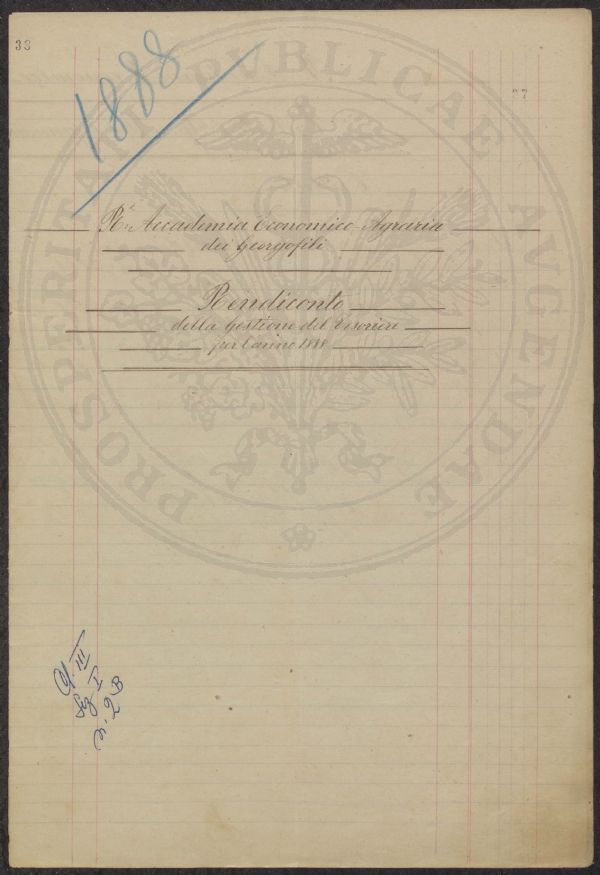 38
1888
37
PROSPERITATI PVBLICAE AVGENDAE
Rª Accademia Economico-Agraria
dei Georgofili
Rendiconto
della Gestione del Tesoriere
per l'anno 1888
Cl. III
Sez I
n. 2 B